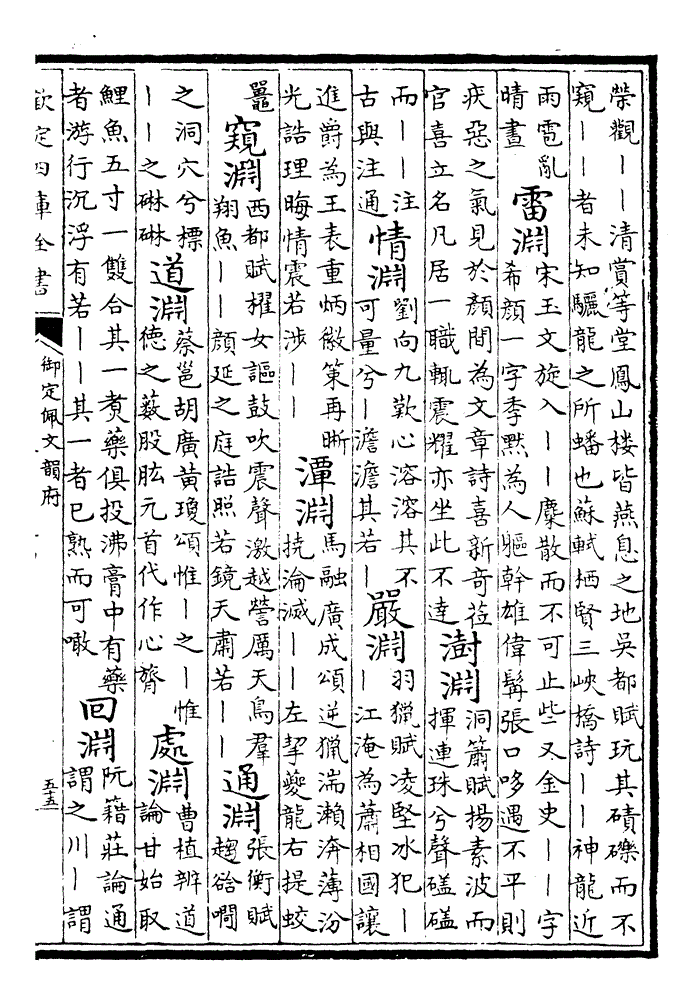 榮觀丨丨清賞等堂鳳山樓皆燕息之地吳都賦玩其磧礫而不
窺丨丨者未知驪龍之所蟠也蘇軾栖賢三峽橋詩丨丨神龍近
雨雹亂
晴晝
雷淵
宋玉文旋入丨丨麋散而不可止些又金史丨丨字
希顏一字季黙為人軀幹雄偉髯張口哆遇不平則
疾惡之氣見於顏間為文章詩喜新奇莅
官喜立名凡居一職輒震耀亦坐此不達
澍淵
洞簫賦揚素波而
揮連珠兮聲礚礚
而丨丨注
古與注通
情淵
劉向九歎心溶溶其不
可量兮丨澹澹其若丨
嚴淵
羽獵賦凌堅冰犯丨
丨江淹為蕭相國讓
進爵為王表重炳徽策再晣
光誥理晦情震若涉丨丨
潭淵
馬融廣成頌逆獵湍瀨渀薄汾
撓淪滅丨丨左挈夔龍右提蛟
鼉
窺淵
西都賦櫂女謳鼓吹震聲激越謍厲天鳥羣
翔魚丨丨顏延之庭誥照若鏡天肅若丨丨
通淵
張衡賦
趨谽㗢
之洞穴兮標
丨丨之碄碄
道淵
蔡邕胡廣黄瓊頌惟丨之丨惟
德之薮股肱元首代作心膂
處淵
曹植辨道
論甘始取
鯉魚五寸一雙合其一煑藥俱投沸膏中有藥
者游行沉浮有若丨丨其一者已熟而可噉
回淵
阮籍莊論通
謂之川丨謂
欽定四庫全書
御定佩文韻府
五五